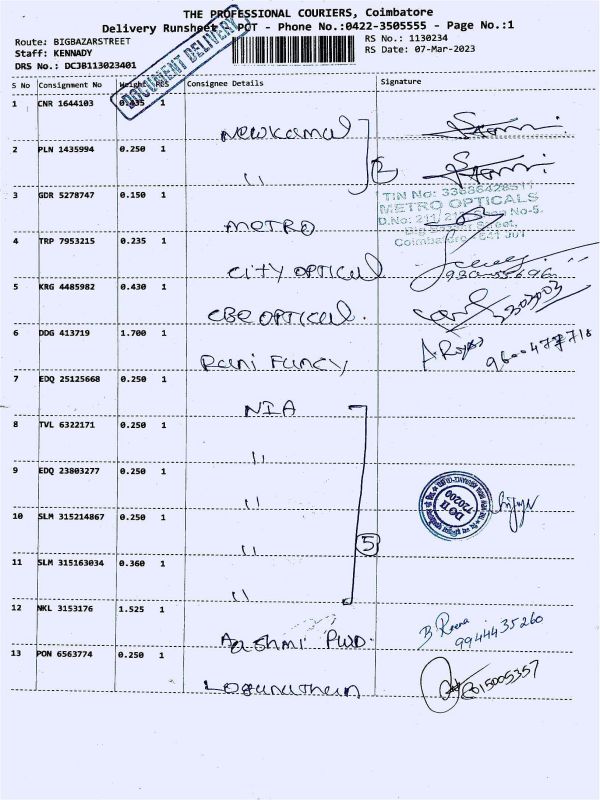 THE PROFESSIONAL COURIERS, Coimbatore
Delivery Runsheet POT - Phone No.:0422-3505555 - Page No.:1
Route: BIGBAZARSTREET
RS No.: 1130234
Staff: KENNADY
RS Date: 07-Mar-2023
DRS No.: DCJB113023401
DOCUMENT DELIVERY
S No Consignment No Weight PCS Consignee Details Signature
1 CNR 1644103 0.435 1
Newkamal
2 PLN 1435994 0.250 1
''
3 GDR 5278747 0.150 1
TIN No:
METRO OPTICALS
D.No: 211/ No-5,
Street,
Coimbatore - 641 001
METRO
4 TRP 7953215 0.235 1
CITY OPTICAL
5 KRG 4485982 0.430 1
CBE OPTICAL.
6 DDG 413719 1.700 1
Rani Fancy
7 EDQ 25125668 0.250 1
NIA
8 TVL 6322171 0.250 1
''
9 EDQ 23803277 0.250 1
''
DO II
720200
10 SLM 315214867 0.250 1
''
5
11 SLM 315163034 0.360 1
''
12 NKL 3153176 1.525 1
Aashmi PWD.
B Reena
9944435260
13 PON 6563774 0.250 1
Logunuthan